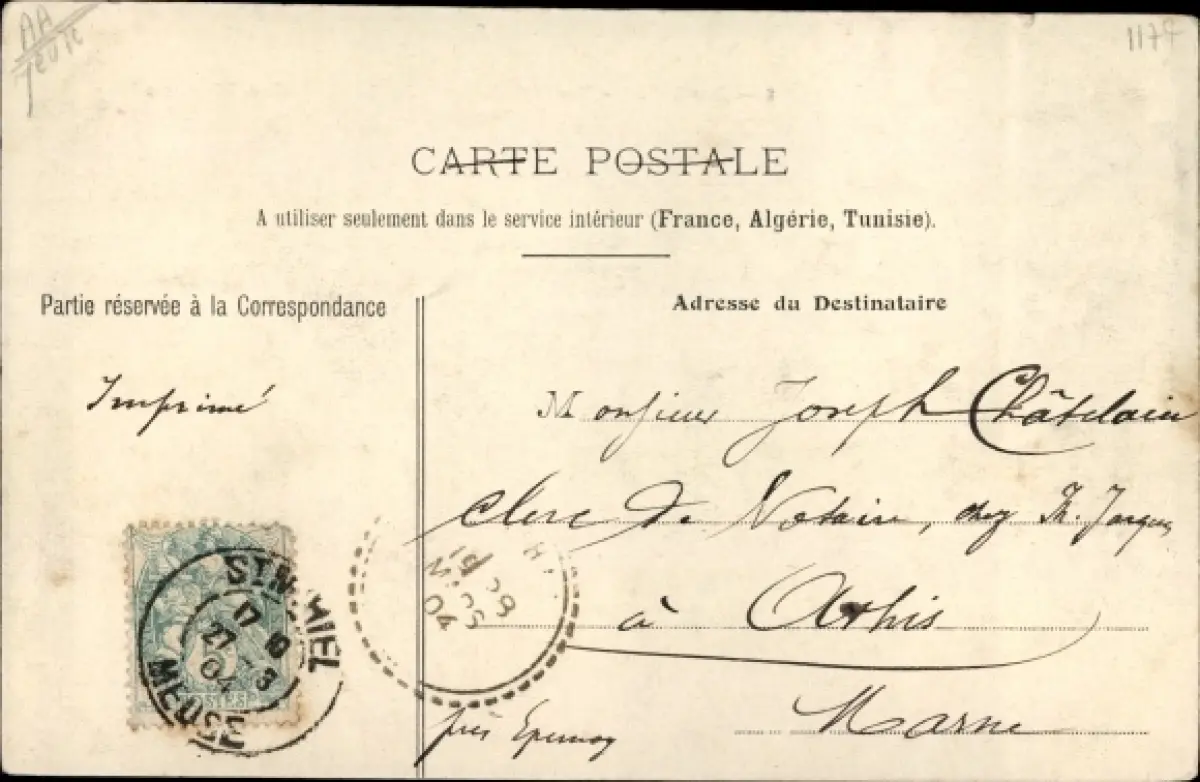 AA
1174
CARTE POSTALE
A utiliser seulement dans le service intérieur (France, Algérie, Tunisie).
Partie réservée à la Correspondance
Adresse du Destinataire
Imprimé
Monsieur Joseph Châtelain
clerc de Notaire, chez
à Athis
Marne
près Epernay
ST MIHIEL
27 -3
04
MEUSE
POSTES
04